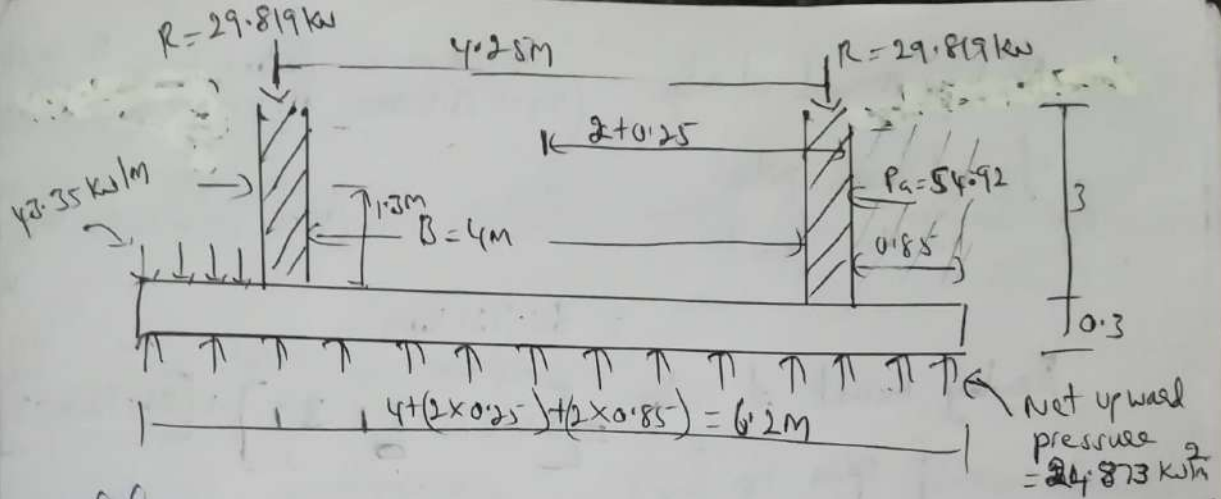 R=29.819kN
4.25M
R=29.819kN
2+0.25
43.35 kN/M
1.3M
Pa=54.92
3
B=4M
0.85
0.3
4+(2×0.25)+(2×0.85)=6.2M
Net upward
pressure
=24.873 kN/m²